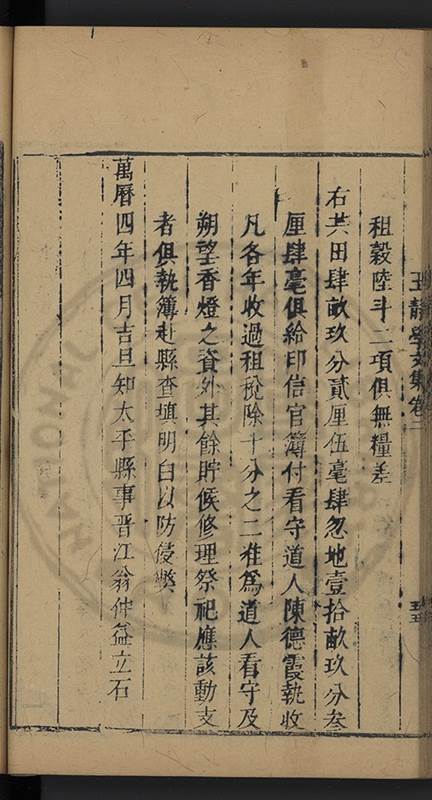 王靜學文集卷二
五五
租穀陸斗二項俱無糧差
右共田肆畝玖分貳厘伍毫肆忽地壹拾畝玖分叄
厘肆毫俱給印信官簿付看守道人陳德霞執收
凡各年收過租稅除十分之二准為道人看守及
朔望香燈之資外其餘貯候修理祭祀應該動支
者俱執簿赴縣查填明白以防侵獘
萬曆四年四月吉旦知太平縣事晋江翁仲益立石